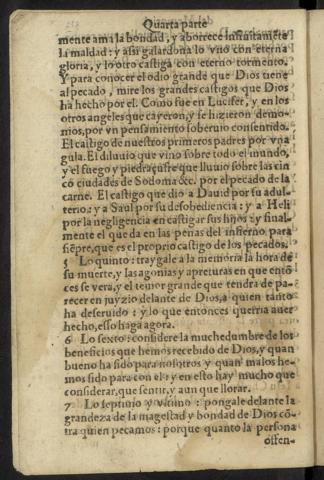 Quarta parte
mente ama la bondad, y aborrece infinitamēte
la maldad: y assi galardona lo vno con eterna
gloria, y lo otro castiga con eterno tormento.
Y para conocer el odio grande que Dios tiene
al pecado, mire los grandes castigos que Dios
ha hecho por el. Como fue en Lucifer, y en los
otros angeles que cayeron, y se hizieron demo-
nios, por vn pensamiento soberuio consentido.
El castigo de nuestros primeros padres por vna
gula. El diluuio que vino sobre todo el mundo,
y el fuego y piedraçufre que lluuio sobre las cin
co ciudades de Sodoma &c. por el pecado de la
carne. El castigo que dio a Dauid por su adul-
terio: y a Saul por su desobediencia: y a Heli
por la negligencia en castigar sus hijos: y final-
mente el que da en las penas del infierno para
siēpre, que es el proprio castigo de los pecados.
5 Lo quinto: traygale a la memoria la hora de
su muerte, y las agonias y apreturas en que entō
ces se vera, y el temor grande que tendra de pa-
recer en juyzio delante de Dios, a quien tanto
ha deseruido: y lo que entonces querria auer
hecho, esso haga agora.
6 Lo sexto: considere la muchedumbre de los
beneficios que hemos recebido de Dios, y quan
bueno ha sido para nosotros y quan malos he-
mos sido para con el: y en esto hay mucho que
considerar, que sentir, y aun que llorar.
7 Lo septimo y vltimo: pongale delante la
grandeza de la magestad y bondad de Dios cō-
tra quien pecamos: porque quanto la persona
offen-